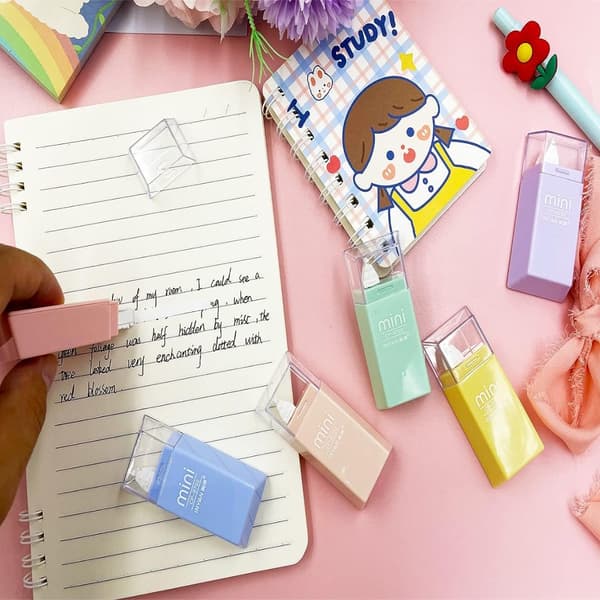 I STUDY!
of my room, I could see a
when
green foliage was half hidden by misc, the
tree looked very enchanting dotted with
red blossom
mini
mini
mini
mini
mini